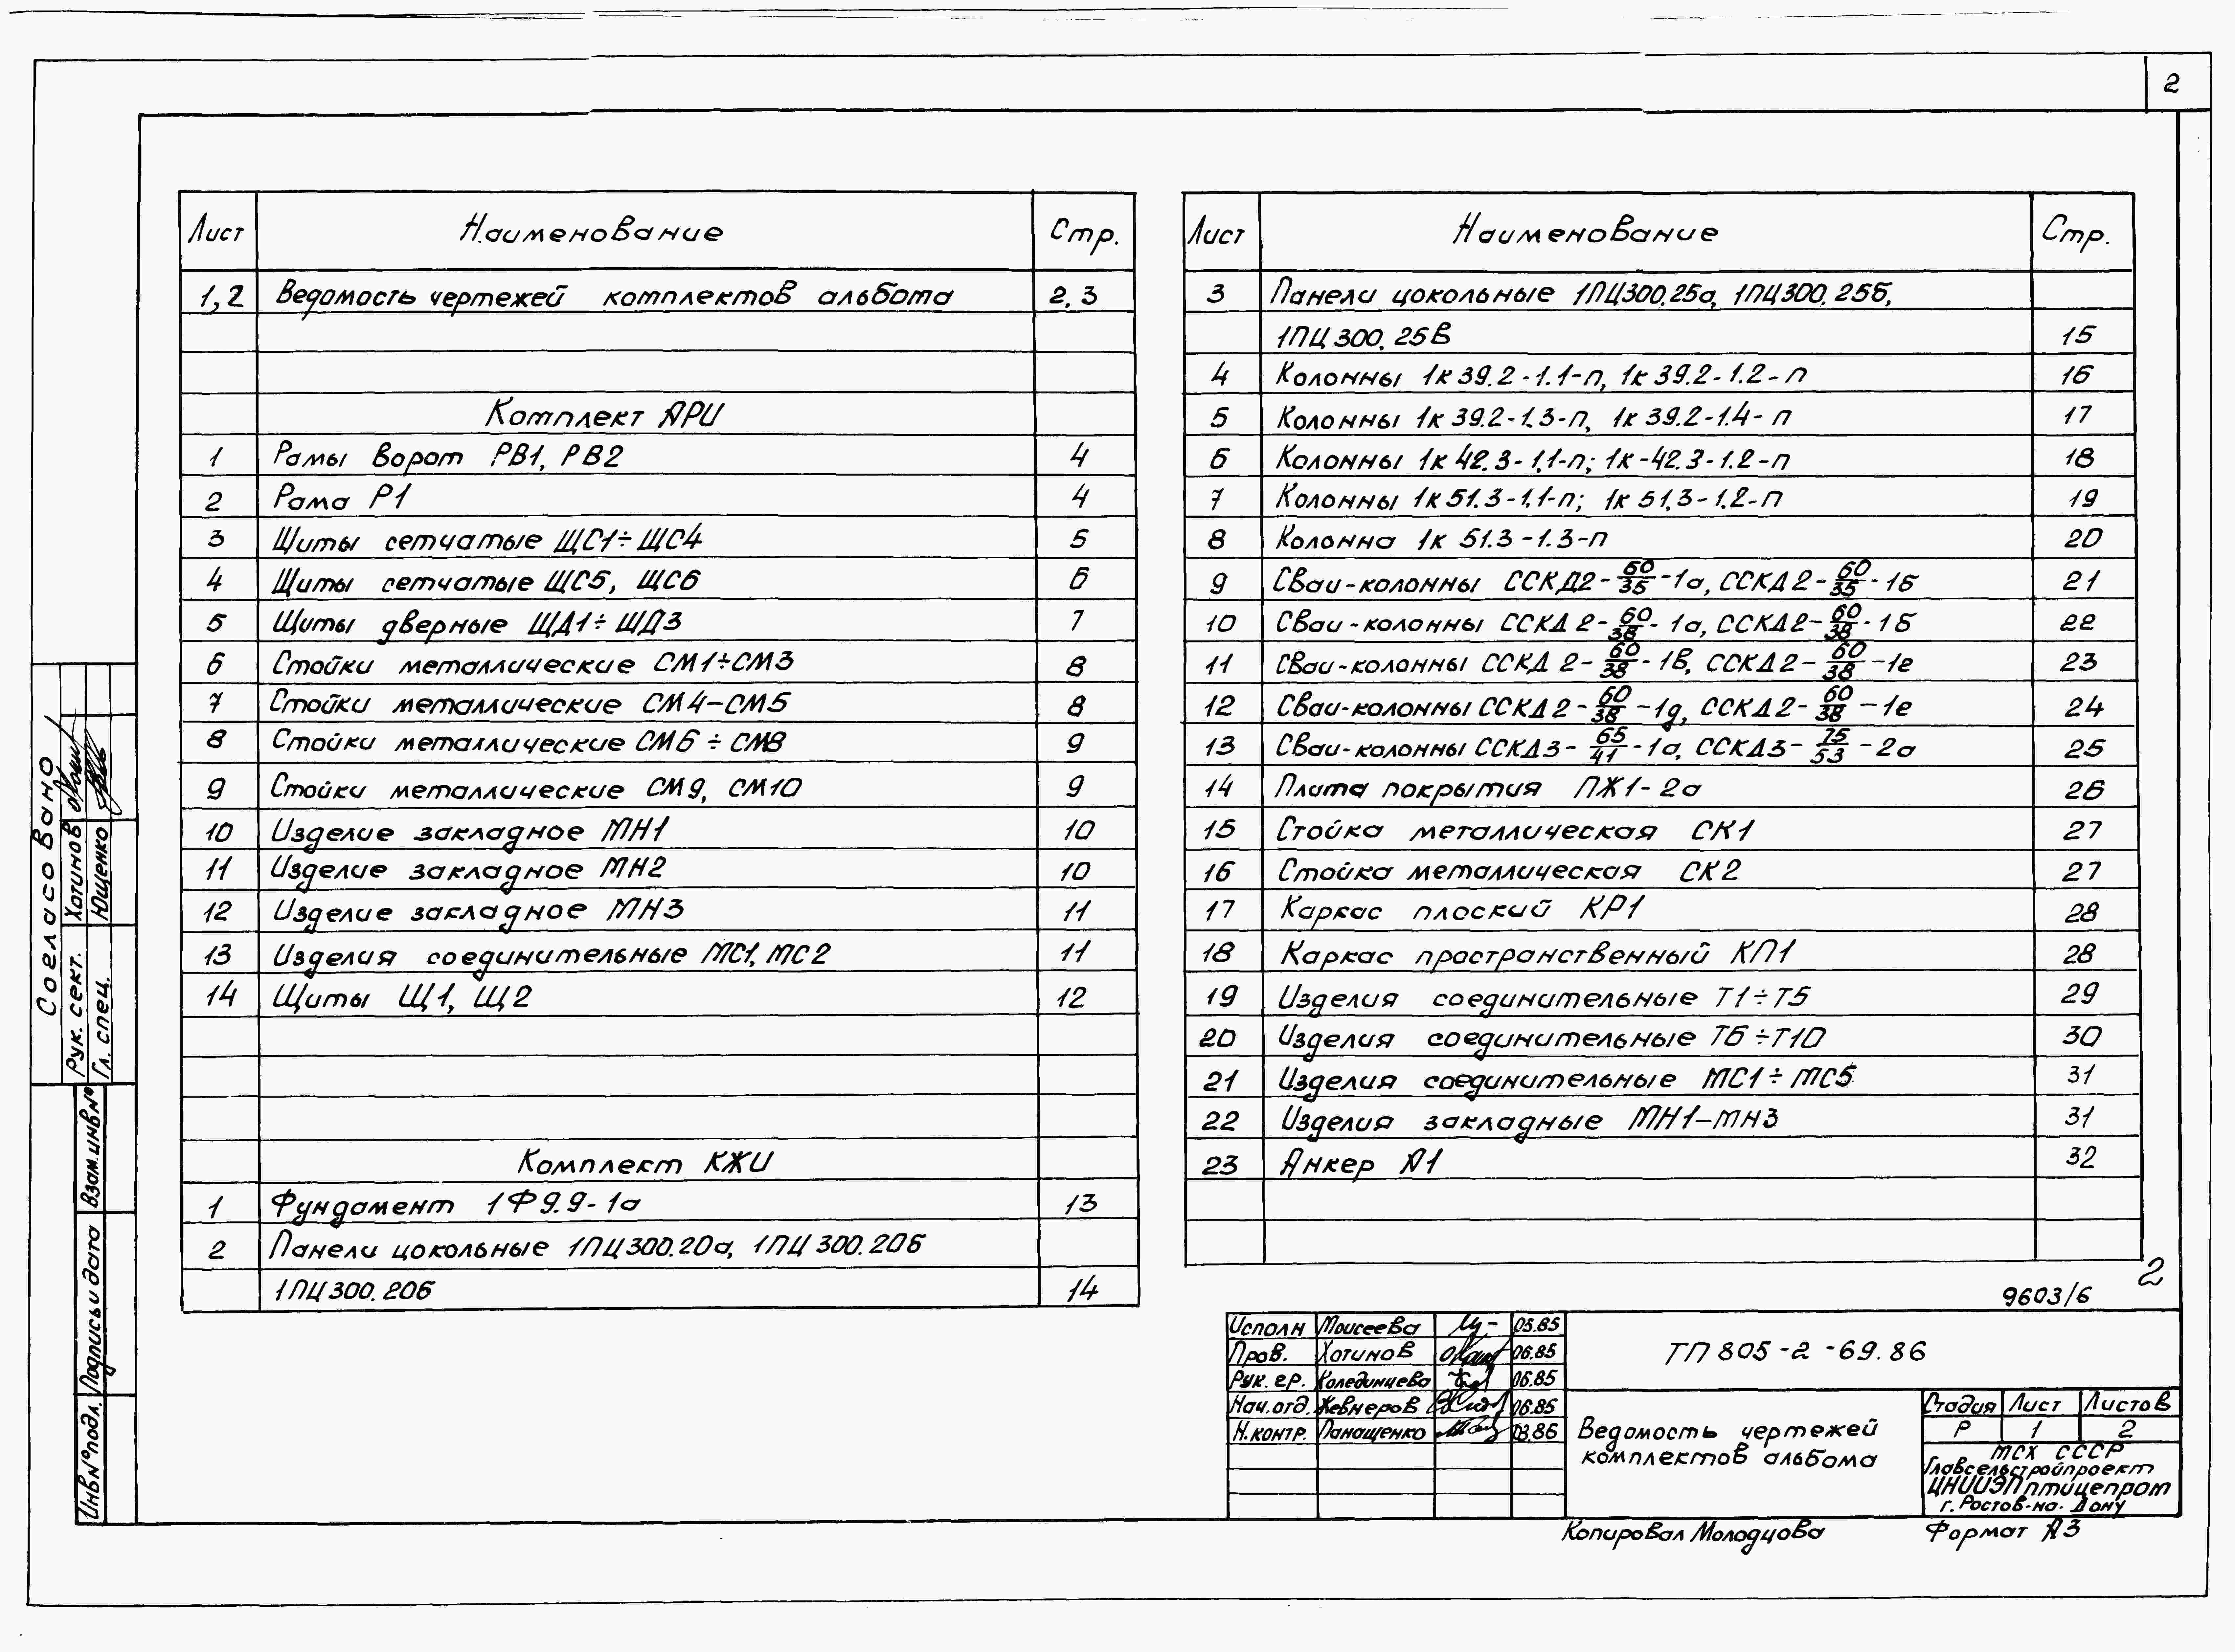 2
Лист Наименование Стр.
1,2 Ведомость чертежей комплектов альбома 2.3
Комплект АРИ
1 Рамы ворот РВ1, РВ2 4
2 Рама Р1 4
3 Щиты сетчатые ЩС1÷ЩС4 5
4 Щиты сетчатые ЩС5, ЩС6 6
5 Щиты дверные ЩД1÷ЩД3 7
6 Стойки металлические СМ1÷СМ3 8
7 Стойки металлические СМ4–СМ5 8
8 Стойки металлические СМ6÷СМ8 9
9 Стойки металлические СМ9, СМ10 9
10 Изделие закладное МН1 10
11 Изделие закладное МН2 10
12 Изделие закладное МН3 11
13 Изделия соединительные МС1, МС2 11
14 Щиты Щ1, Щ2 12
Комплект КЖИ
1 Фундамент 1Ф9.9-1а 13
2 Панели цокольные 1ПЦ300.20а, 1ПЦ300.20б
1ПЦ300.20б 14
Лист Наименование Стр.
3 Панели цокольные 1ПЦ300.25а, 1ПЦ300.25б,
1ПЦ300.25В 15
4 Колонны 1к39.2-1.1-п, 1к39.2-1.2-п 16
5 Колонны 1к39.2-1.3-п, 1к39.2-1.4-п 17
6 Колонны 1к42.3-1.1-п; 1к-42.3-1.2-п 18
7 Колонны 1к51.3-1.1-п; 1к51.3-1.2-п 19
8 Колонна 1к51.3-1.3-п 20
9 Сваи-колонны ССКД2-60/35-1а, ССКД2-60/35-1б 21
10 Сваи-колонны ССКД2-60/38-1а, ССКД2-60/38-1б 22
11 Сваи-колонны ССКД2-60/38-1В, ССКД2-60/38-1г 23
12 Сваи-колонны ССКД2-60/38-1д, ССКД2-60/38-1е 24
13 Сваи-колонны ССКД3-65/41-1а, ССКД3-75/53-2а 25
14 Плита покрытия ПЖ1-2а 26
15 Стойка металлическая СК1 27
16 Стойка металлическая СК2 27
17 Каркас плоский КР1 28
18 Каркас пространственный КП1 28
19 Изделия соединительные Т1÷Т5 29
20 Изделия соединительные Т6÷Т10 30
21 Изделия соединительные МС1÷МС5 31
22 Изделия закладные МН1–МН3 31
23 Анкер А1 32
2
9603/6
Исполн Моисеева 05.85
Пров. Хотинов 06.85
Рук. гр.Колединцева 06.85
Нач. отд. Жевнеров 06.85
Н. контр. Панащенко 03.86
ТП 805-2-69.86
Ведомость чертежей
комплектов альбома
Стадия Лист Листов
Р 1 2
МСХ СССР
Главсельстройпроект
ЦНИИЭПптицепром
г. Ростов-на-Дону
Копировал Молодцова
Формат А3
Согласовано
Рук. сект. Хотинов
Гл. спец. Ющенко
Взам.инв№
Подпись и дата
Инв№подл.